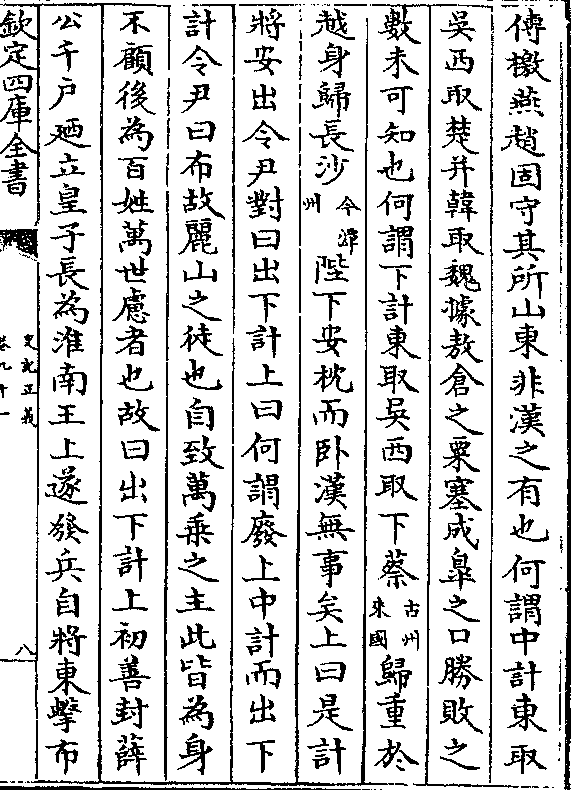 傳檄燕趙固守其所山東非漢之有也何謂中計東取
吳西取楚并韓取魏據敖倉之粟塞成臯之口勝敗之
數未可知也何謂下計東取吳西取下蔡古州來國歸重於
越身歸長沙今潭州陛下安枕而卧漢無事矣上曰是計
將安出令尹對曰出下計上曰何謂廢上中計而出下
計令尹曰布故麗山之徒也自致萬乘之主此皆為身
不顧後為百姓萬世慮者也故曰出下計上初善封薛
公千户廼立皇子長為淮南王上遂發兵自將東擊布
欽定四庫全書
史記正義
卷九十一
八